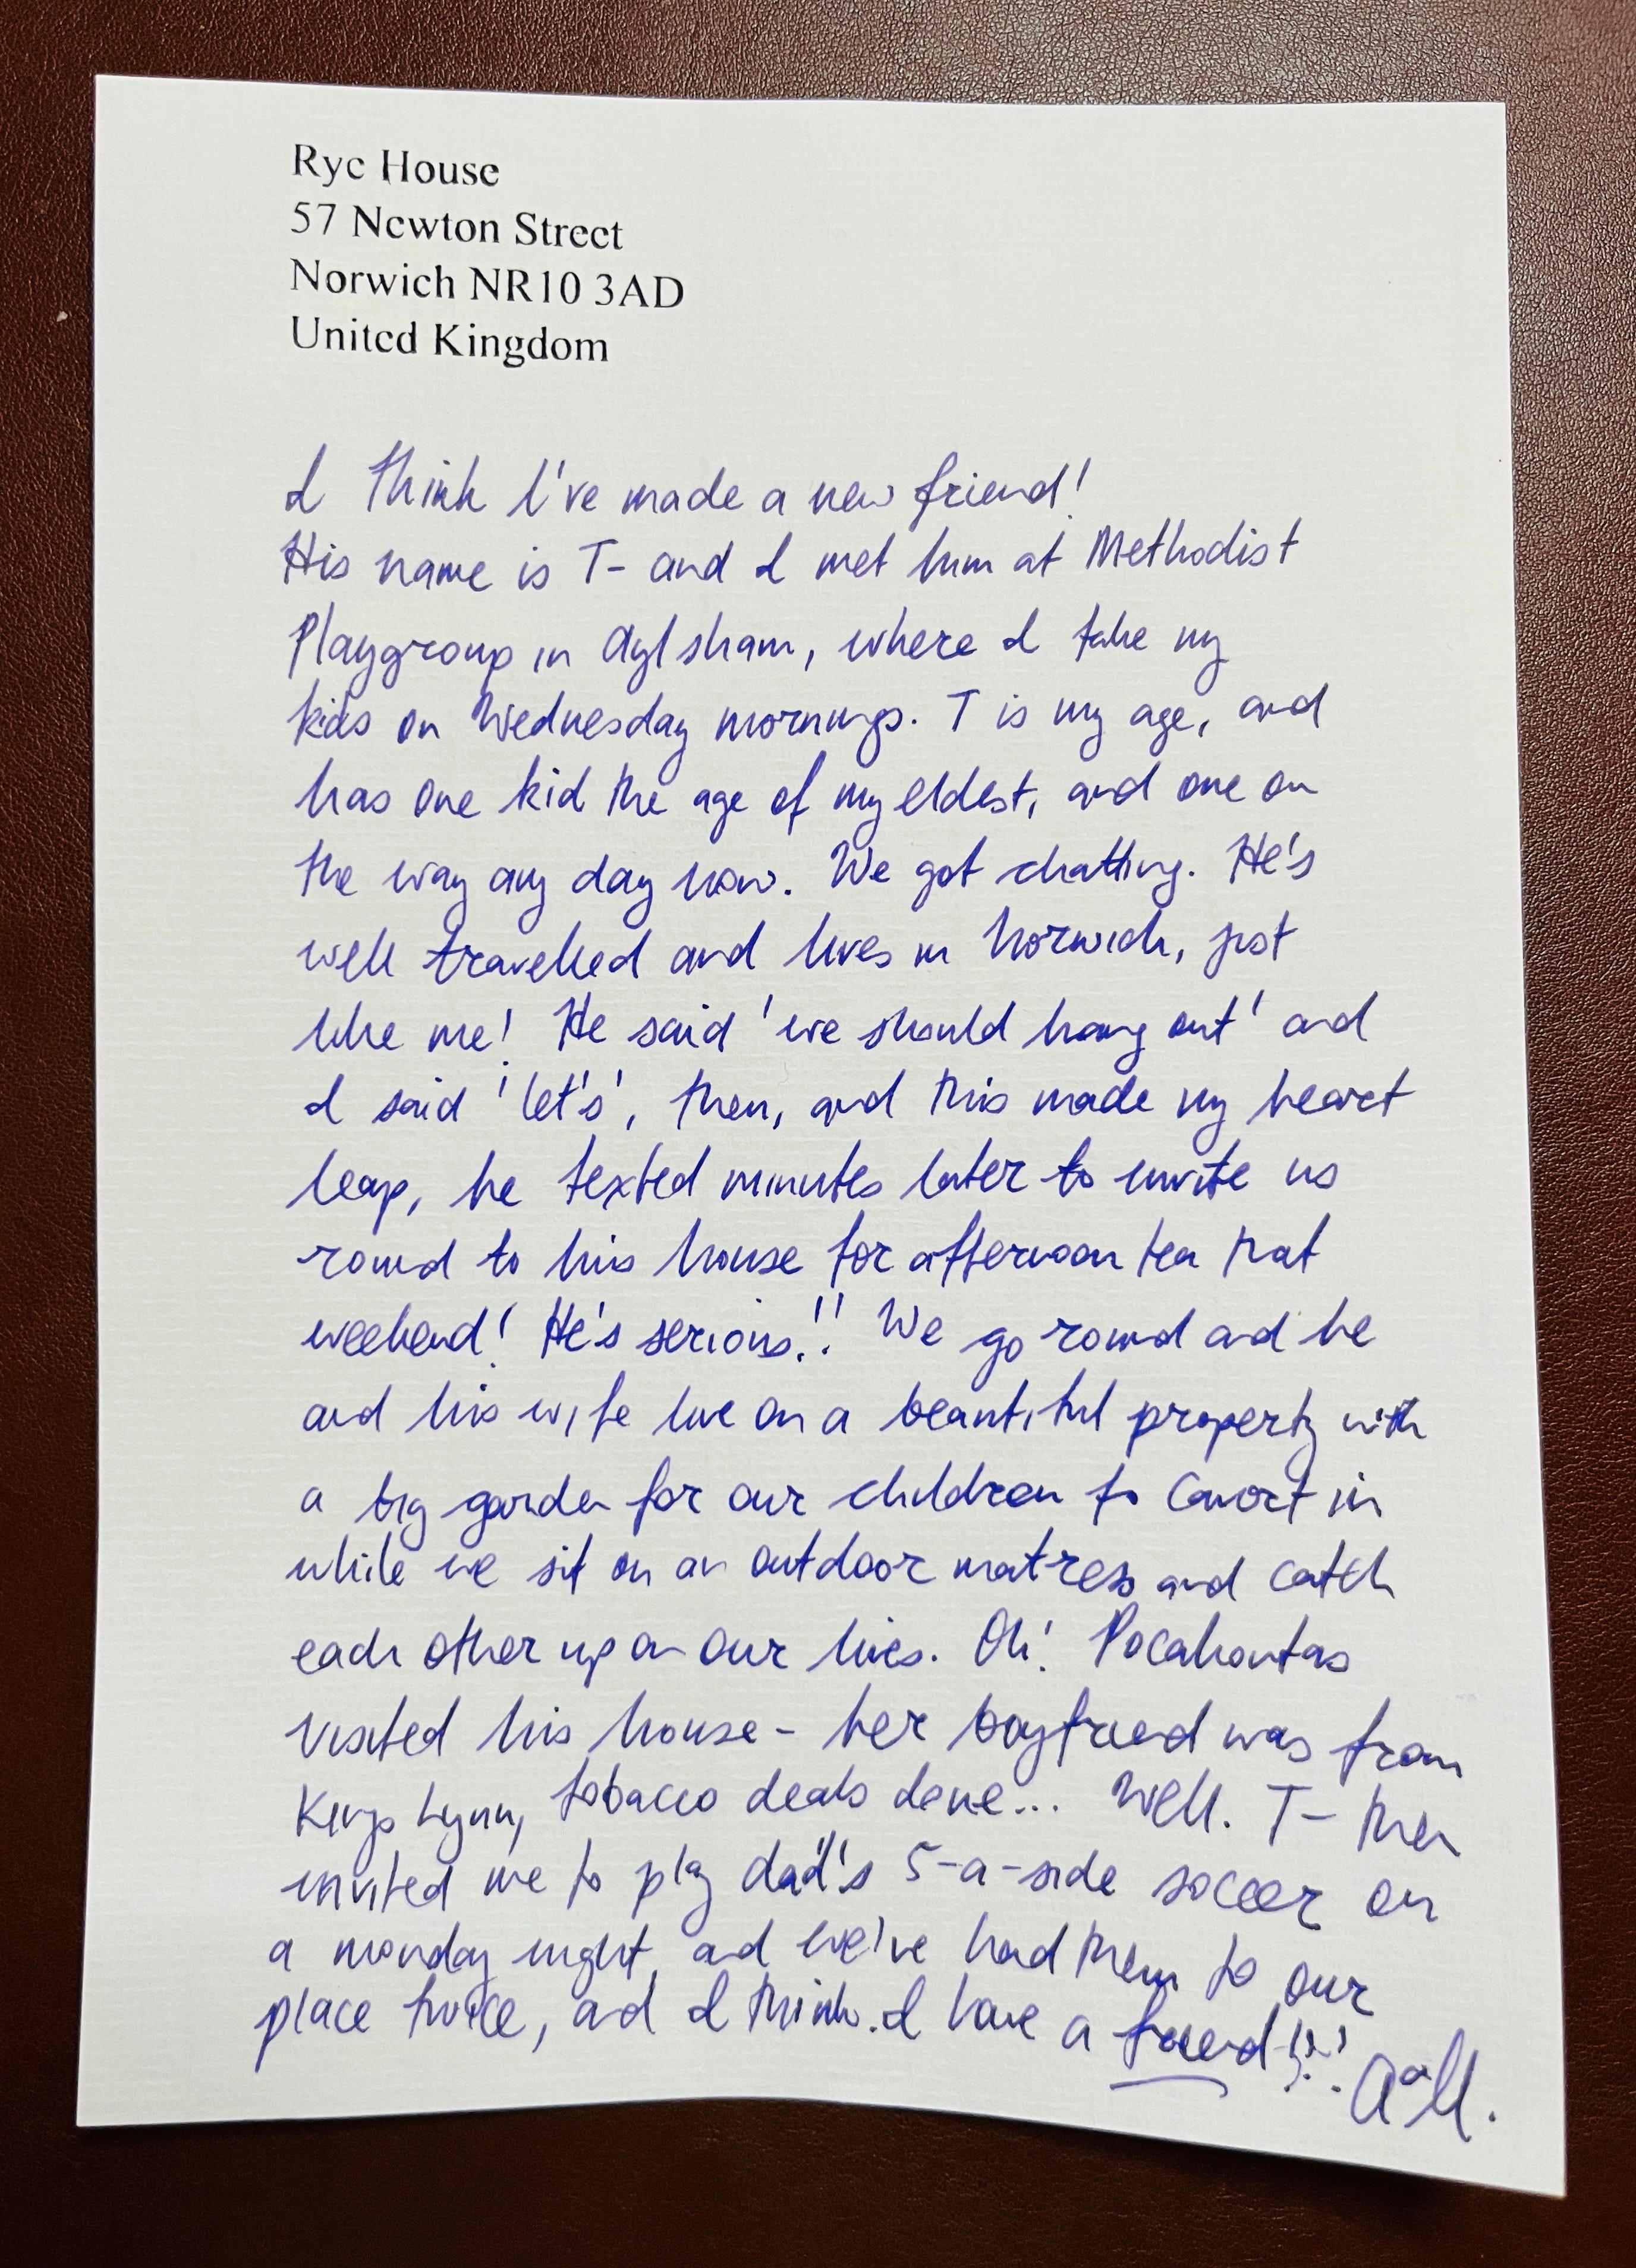 Rye House
57 Newton Street
Norwich NR10 3AD
United Kingdom
I think I've made a new friend!
His name is T- and I met him at Methodist
Playgroup in Aylsham, where I take my
kids on Wednesday mornings. T is my age, and
has one kid the age of my eldest, and one on
the way any day now. We got chatting. He's
well travelled and lives in Norwich, just
like me! He said 'we should hang out' and
I said 'let's', then, and this made my heart
leap, he texted minutes later to invite us
round to his house for afternoon tea that
weekend! He's serious!! We go round and he
and his wife live on a beautiful property with
a big garden for our children to cavort in
while we sit on an outdoor matress and catch
each other up on our lives. Oh! Pocahontas
visited his house - her boyfriend was from
Kings Lynn, tobacco deals done... Well. T- then
invited me to play dad's 5-a-side soccer on
a monday night, and we've had them to our
place twice, and I think I have a friend!!!